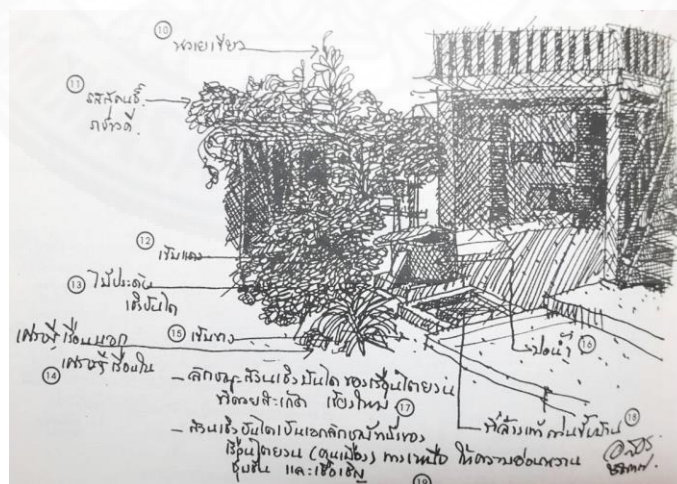 10 พวยเขียว
11 รสสุคนธ์
12 เข็มแดง
13 ไม้ประดับ
เชิงบันได
15
เศรษฐีเรือนนอก
14 เศรษฐีเรือนใน
บ่อน้ำ 16
- ลักษณะสวนเชิงบันไดของเรือนไตยวน
ที่ดอยสะเก็ด เชียงใหม่ 17
ที่ล้างเท้าก่อนขึ้นบ้าน 18
- สวนเชิงบันไดเป็นเอกลักษณ์หนึ่งของ
เรือนไตยวน (คนเมือง) ทางเหนือ ให้ความอ่อนหวาน
ชุ่มชื่น และเชื้อเชิญ
19